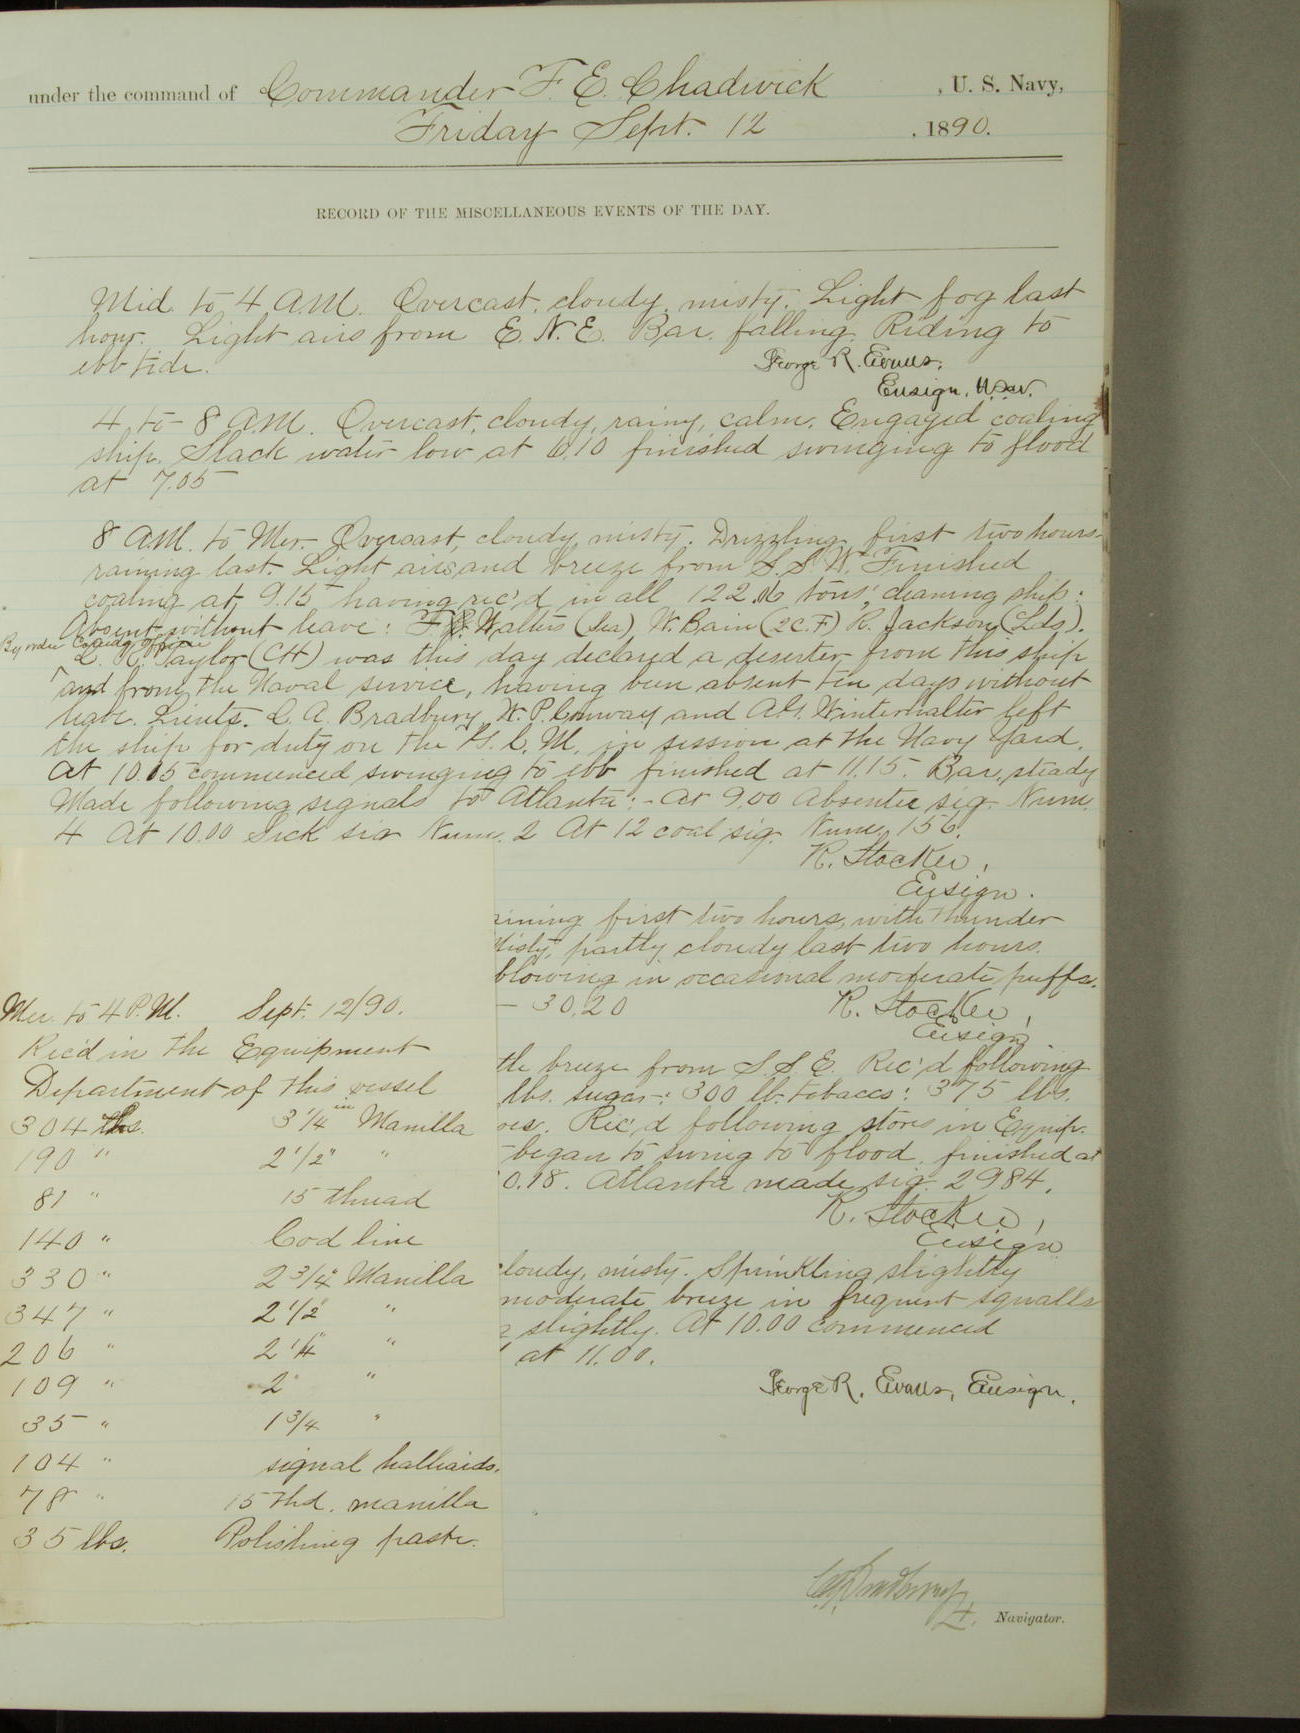 under the command of Commander F. E. Chadwick, U. S. Navy,
Friday Sept. 12, 1890.
RECORD OF THE MISCELLANEOUS EVENTS OF THE DAY.
Mid to 4 A.M. Overcast, cloudy, misty. Light fog last
hour. Light airs from E.N.E. Bar. falling. Riding to
ebb tide.
George R. Evans,
Ensign, U.S.N.
4 to 8 A.M. Overcast, cloudy, rainy, calm. Engaged coaling
ship. Slack water low at 6.10 finished swinging to flood
at 7.05
8 A.M. to Mer. Overcast, cloudy, misty. Drizzling first two hours
raining last. Light airs and breeze from S.S.W. Finished
coaling at 9.15 having rec'd in all 122 tons; cleaning ship:
Absent without leave: F. Walters (Sea), W. Bain (2C.F) R. Jackson (Lds).
By order Comdg officer
Taylor (CH) was this day declared a deserter from this ship
and from the Naval service, having been absent ten days without
leave. Lieuts. C. A. Bradbury, W. P. Conway and A.G. Winterhalter left
the ship for duty on the G. C. M. in session at the Navy Yard.
At 10.05 commenced swinging to ebb finished at 11.15. Bar. steady
Made following signals to Atlanta:- At 9.00 Absentee sig. Num.
4 At 10.00 Sick sig Num. 2 At 12 coal sig. Num. 156.
R. Stocker,
Ensign.
aining first two hours, with thunder
Misty, partly cloudy last two hours.
blowing in occasional moderate puffs.
- 30.20
R. Stocker,
Ensign
tle breeze from S.S.E. Rec'd following
lbs. sugar: 300 lb. tobacco: 375 lbs.
oes. Rec'd following stores in Equip.
began to swing to flood, finished at
0.18. Atlanta made sig. 2984.
R. Stocker,
Ensign
loudy, misty. Sprinkling slightly
moderate breeze in frequent squalls
slightly. At 10.00 commenced
at 11.00.
George R. Evans, Ensign.
Mer. to 4 P.M. Sept. 12/90.
Rec'd in the Equipment
Department of this vessel
304 lbs. 3 1/4 in Manilla
190 " 2 1/2" "
81 " 15 thread
140 " Cod line
330 " 2 3/4" Manilla
347 " 2 1/2" "
206 " 2 1/4" "
109 " 2" "
35 " 1 3/4 "
104 " signal halliards.
78 " 15 thd. manilla
35 lbs. Polishing paste.
Navigator.